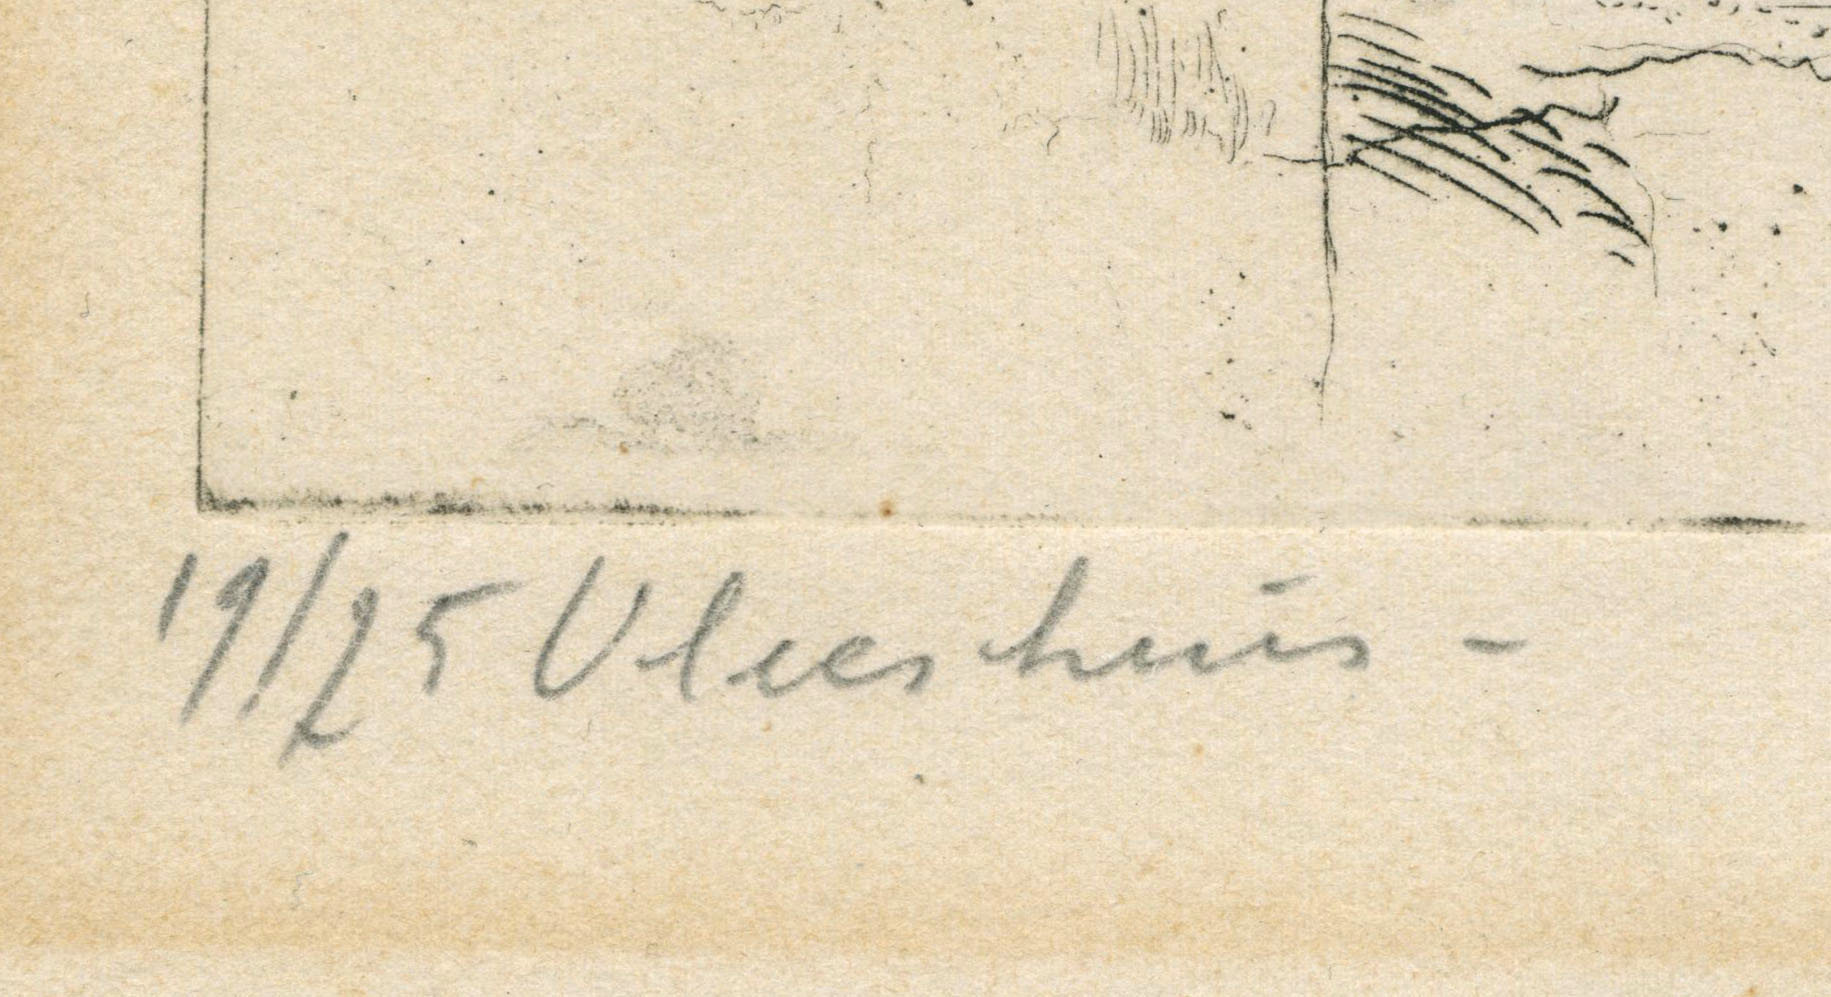 19/25 Vleeshuis -